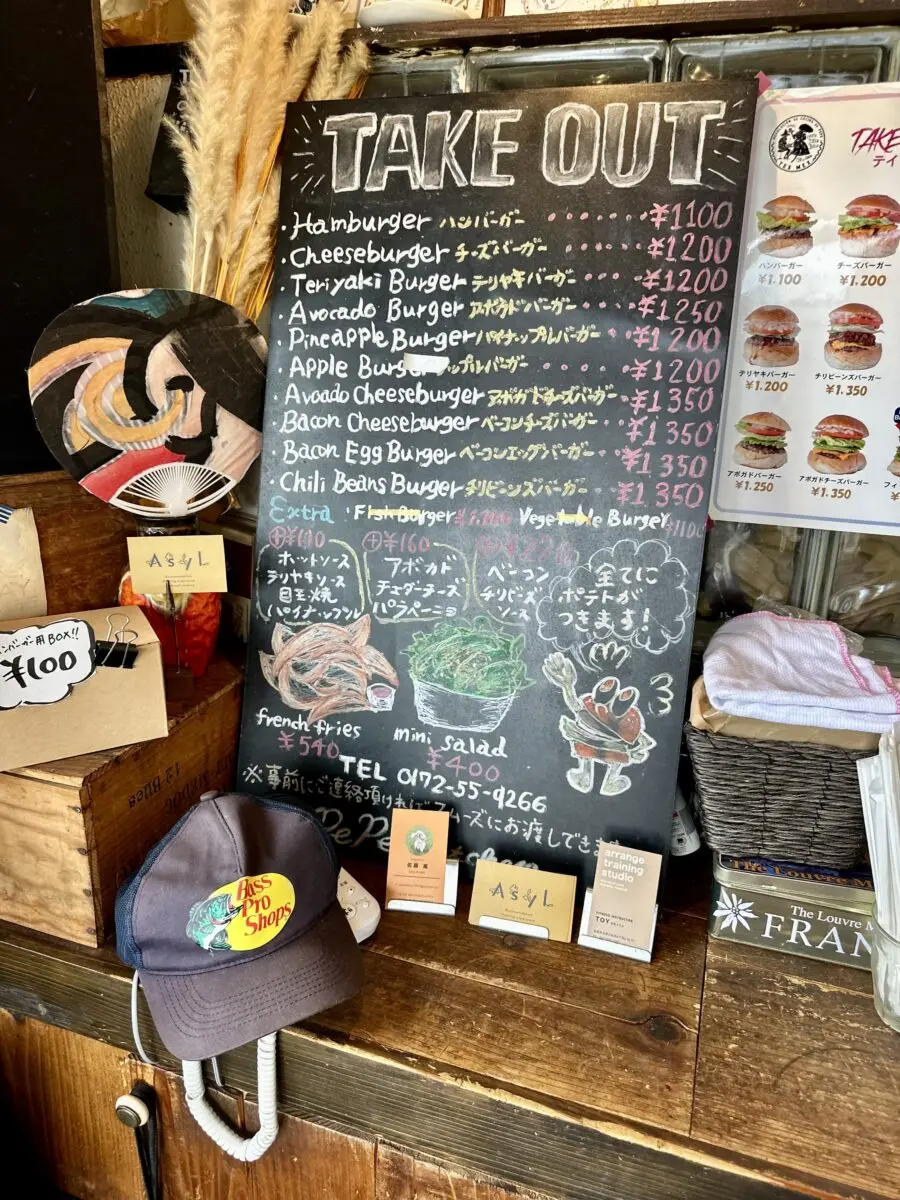 TAKE OUT
・Hamburger ハンバーガー ¥1100
・Cheeseburger チーズバーガー ¥1200
・Teriyaki Burger テリヤキバーガー ¥1200
・Avocado Burger アボカドバーガー ¥1250
・Pineapple Burger パイナップルバーガー ¥1200
・Apple Burg ップルバーガー ¥1200
・Avoado Cheeseburger アボカドチーズバーガー ¥1350
・Bacon Cheeseburger ベーコンチーズバーガー ¥1350
・Bacon Egg Burger ベーコンエッグバーガー ¥1350
・Chili Beans Burger チリビーンズバーガー ¥1350
Extra
Vege Burger
⊕¥110
ホットソース
テリヤキソース
目玉焼
パイナップル
⊕¥160
アボカド
チェダーチーズ
ハラペーニョ
⊕¥220
ベーコン
チリビーンズ
ソース
全てに
ポテトが
つきます!
french fries
¥540
mini salad
¥400
TEL 0172-55-9266
※事前にご連絡頂ければスムーズにお渡しできま
AsyL
ンバーガー用BOX!!
¥100
Bass
Pro
Shops
AsyL
arrange
training
studio
TOY
TAKE
テイ
TEE MEE
ハンバーガー
¥1.100
チーズバーガー
¥1.200
テリヤキバーガー
¥1.200
チリビーンズバーガー
¥1.350
アボガドバーガー
¥1.250
アボガドチーズバーガー
¥1.350
フィ
The Louvre M
The Louvre
FRAN